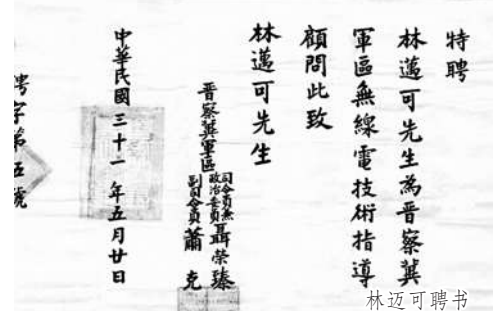 特聘
林邁可先生為晉察冀
軍區無線電技術指導
顧問此致
林邁可先生
晉察冀軍區
司令員兼
政治委員聶榮臻
副司令員蕭克
中華民國三十一年五月廿日
聘字第五號
林迈可聘书